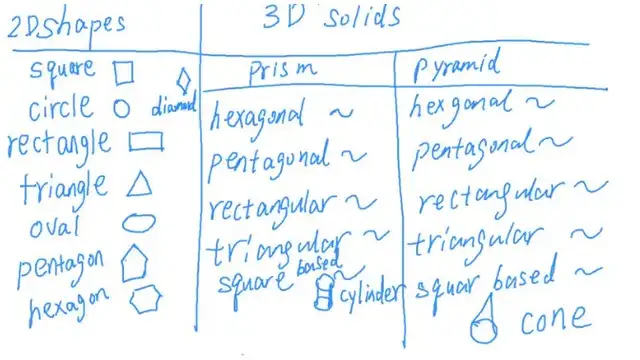 2Dshapes
3D solids
square
diamond
circle
rectangle
triangle
oval
pentagon
hexagon
prism
hexagonal ~
pentagonal ~
rectangular ~
triangular ~
square based ~
cylinder
pyramid
hexgonal ~
pentagonal ~
rectangular ~
triangular ~
squar based ~
cone